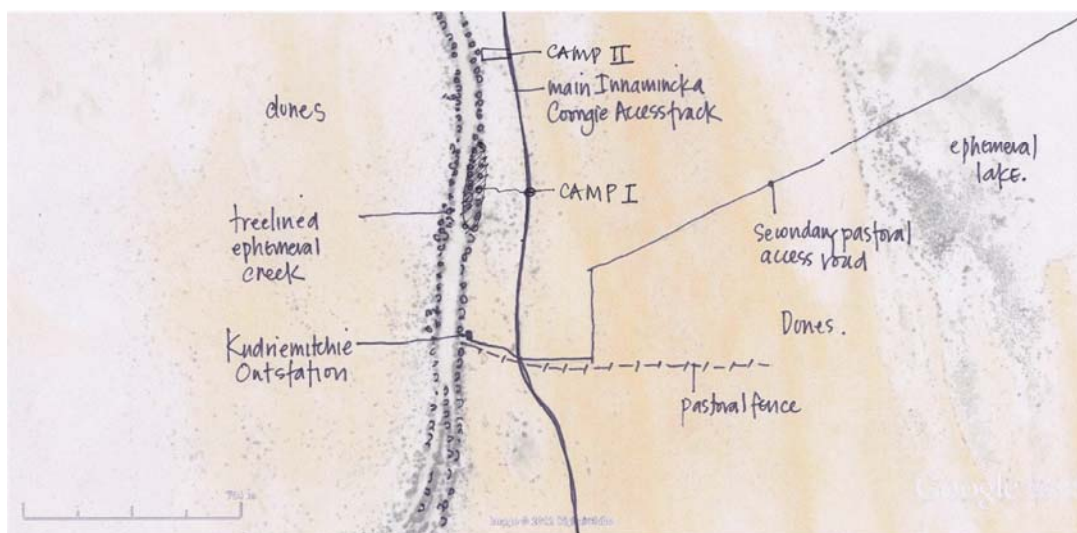 CAMP II
main Innamincka
Coongie Access track
dunes
ephemeral
lake.
CAMP I
treelined
ephemeral
creek
Secondary pastoral
access road
Dones.
Kudriemitchie
Outstation
pastoral fence
Google